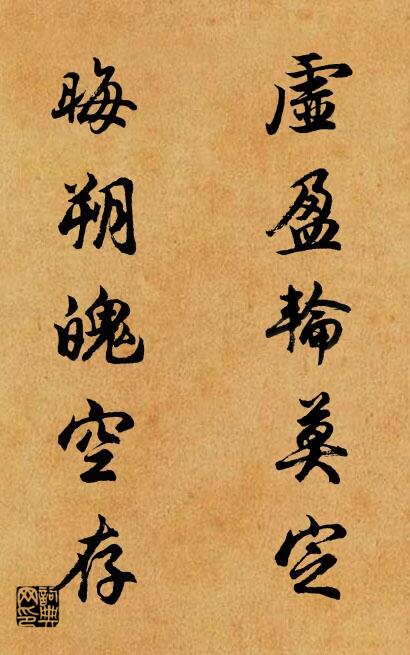 虛盈輪莫定
晦朔魄空存
詞典網印